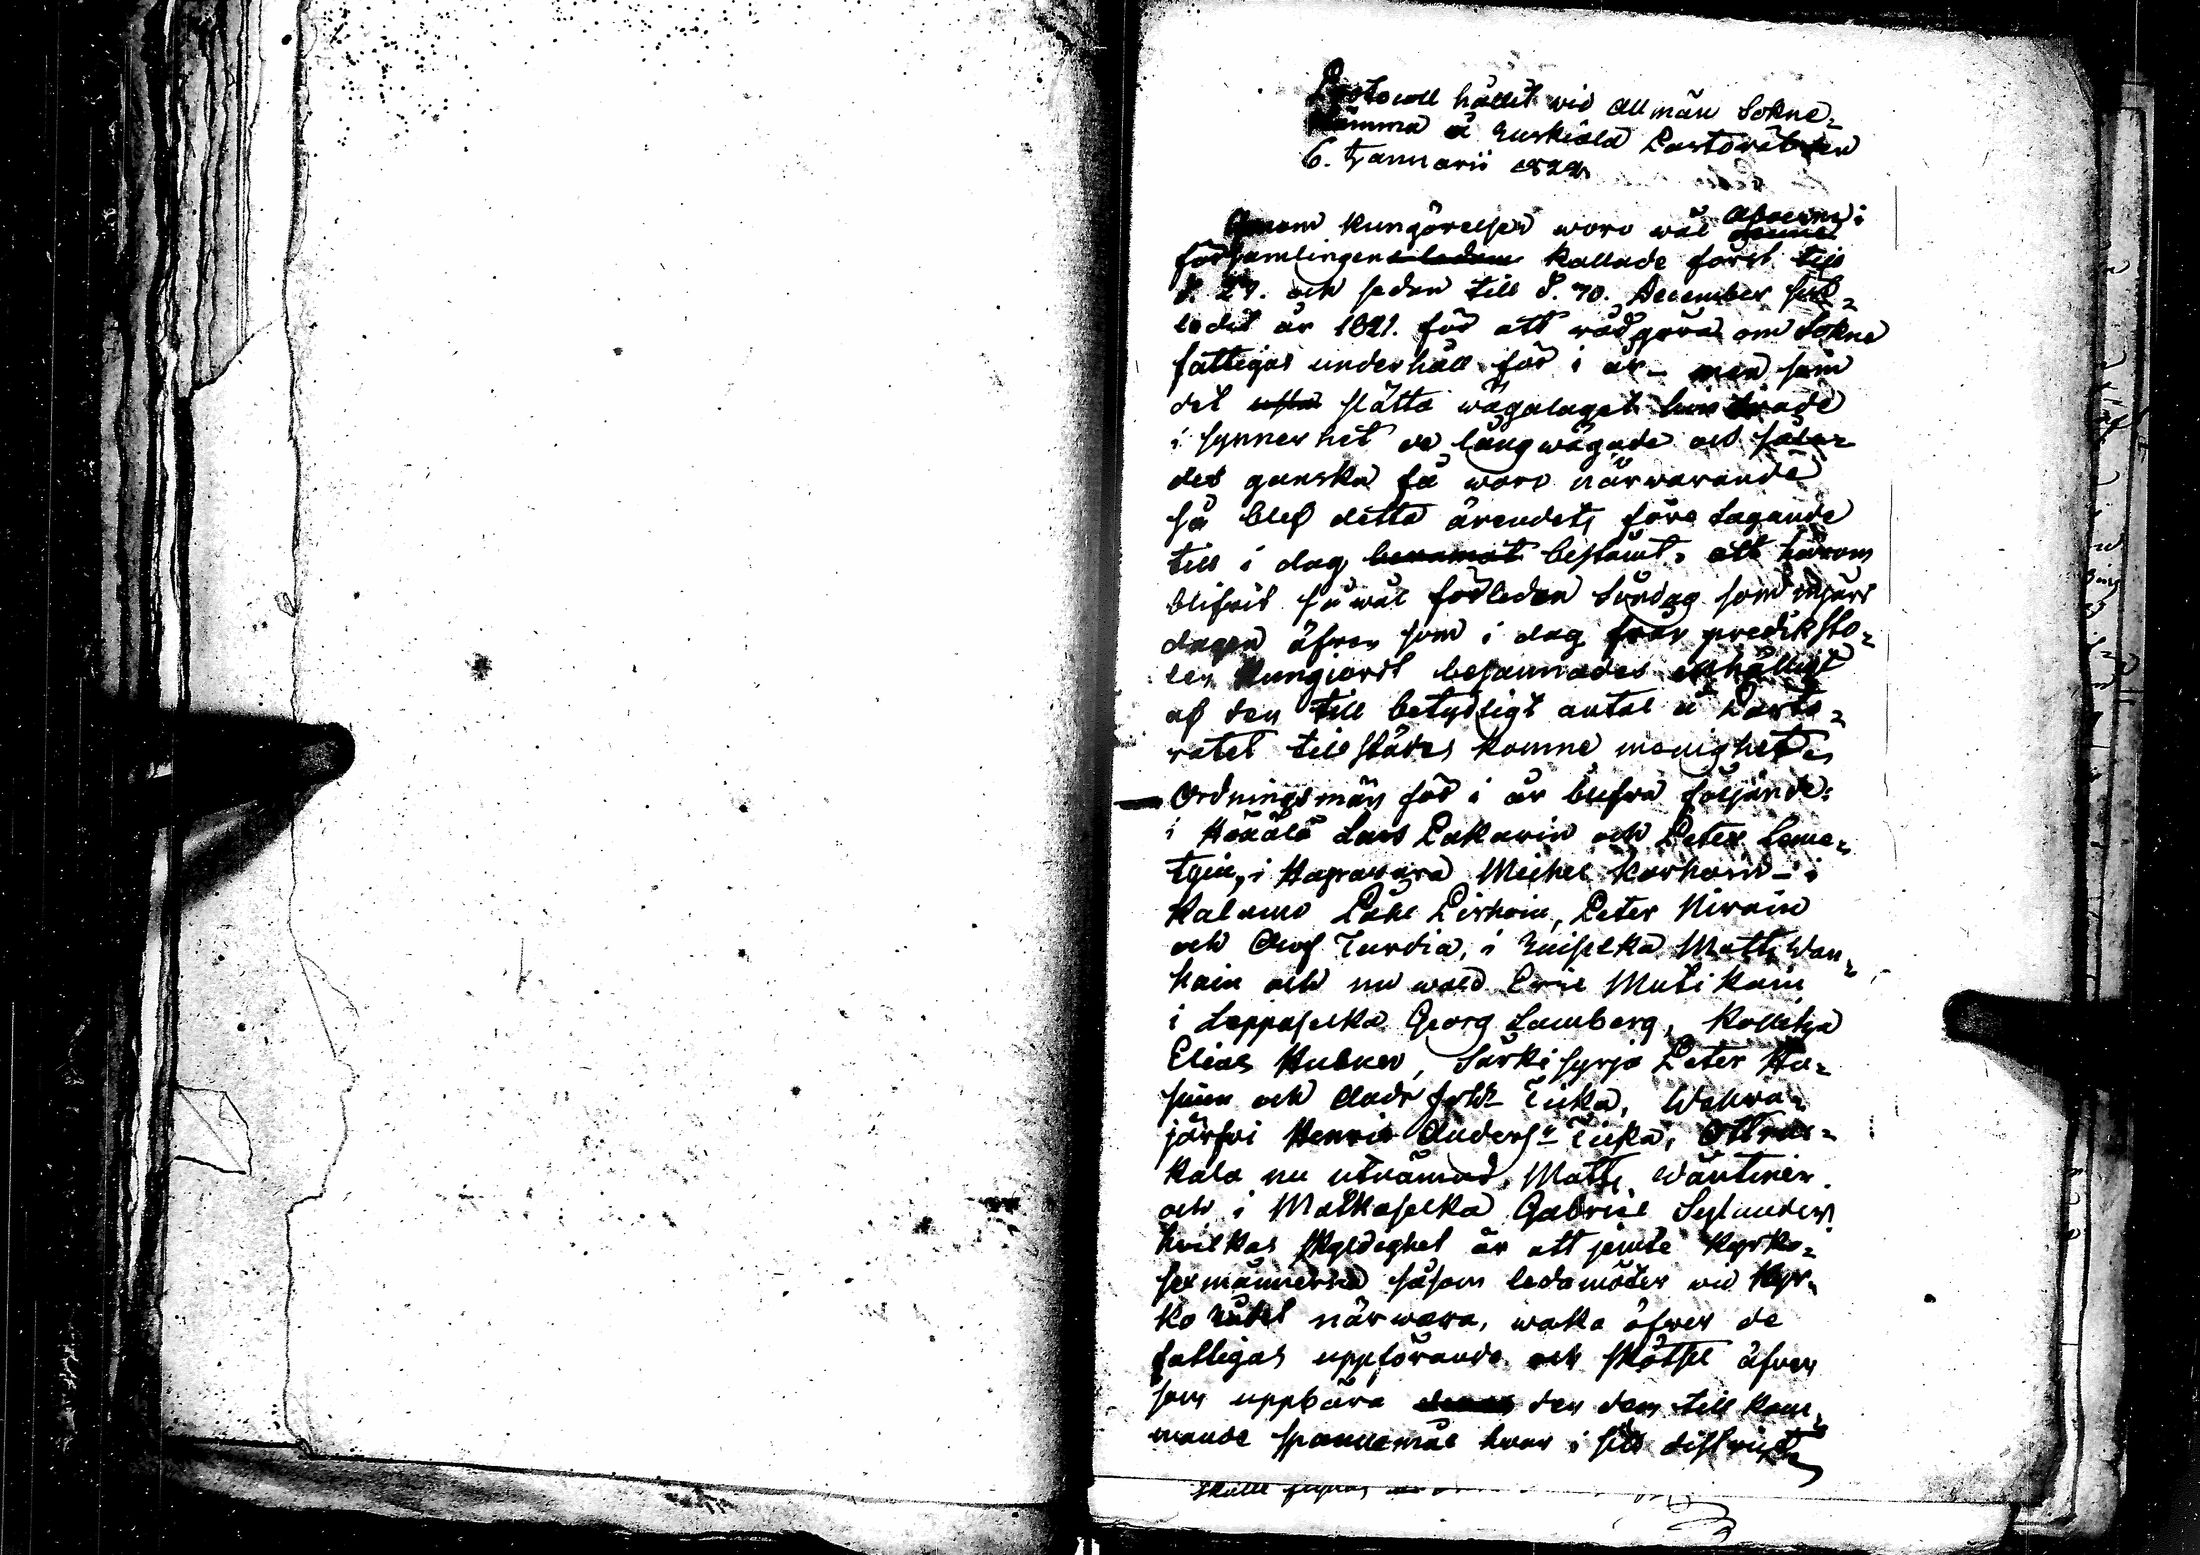 Protocoll hållit vid Allmän Sokne-
stämma å Ruskiala Pastorät den
6. Januarii 1822.
Genom kungörelsen woro wäl Åboerne i
församlingens kallade först till
d. 27. och sedan till d. 30. December sist-
ledit år 1821. för att rådgöra om Sokne
fattigas underhåll för i år - men som
det slätta wägalaget hindrade
i synnerhet de långwägade och såle-
des ganska få woro närwarande
så blef detta ärendets företagande
till i dag beramat bestämt, att härom
blifvit så wäl förleden Söndag som nyårs
dagen äfven som i dag från prediksto-
len kungjordt besannades enhälligt
af den till betydligt antal å Pasto-
ratet tillstädes komne menighet.
Ordningsmän för i år blefvo följande:
i Lars Pakarin och Peter Leme-
tyin, i Haprawara Michel Korhoin - i
Kalamo Påhl Pirhoin, Peter Nirain
och Olof Turdia, i Ruiselka Matts Wan-
hain och nu wald Eric Mutikain
i Leppaselka Georg Lamberg, Kollitza
Elias Hubner, Särkisyrja Peter Ha-
suin och And: Joh:s Tieka, Wahwa-
järfwi Henric Anders:n Tieka, Ottras-
kala nu utnämnd Matts Wäntinen
och i Matkaselka Gabriel Sylander
hvilkas skyldighet är att jemte Kyrko-
sexmännerne såsom ledamöter vid Kyr-
ko Rådet närwara, waka öfver de
fattigas uppförande och skötsel äfven
som uppbära den dem till kom-
mande spannemål hvar i sitt district